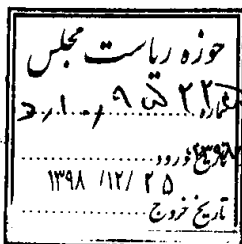 حوزه ریاست مجلس
شماره
تاریخ ورود
۱۳۹۸ /۱۲/ ۲۵
تاریخ خروج